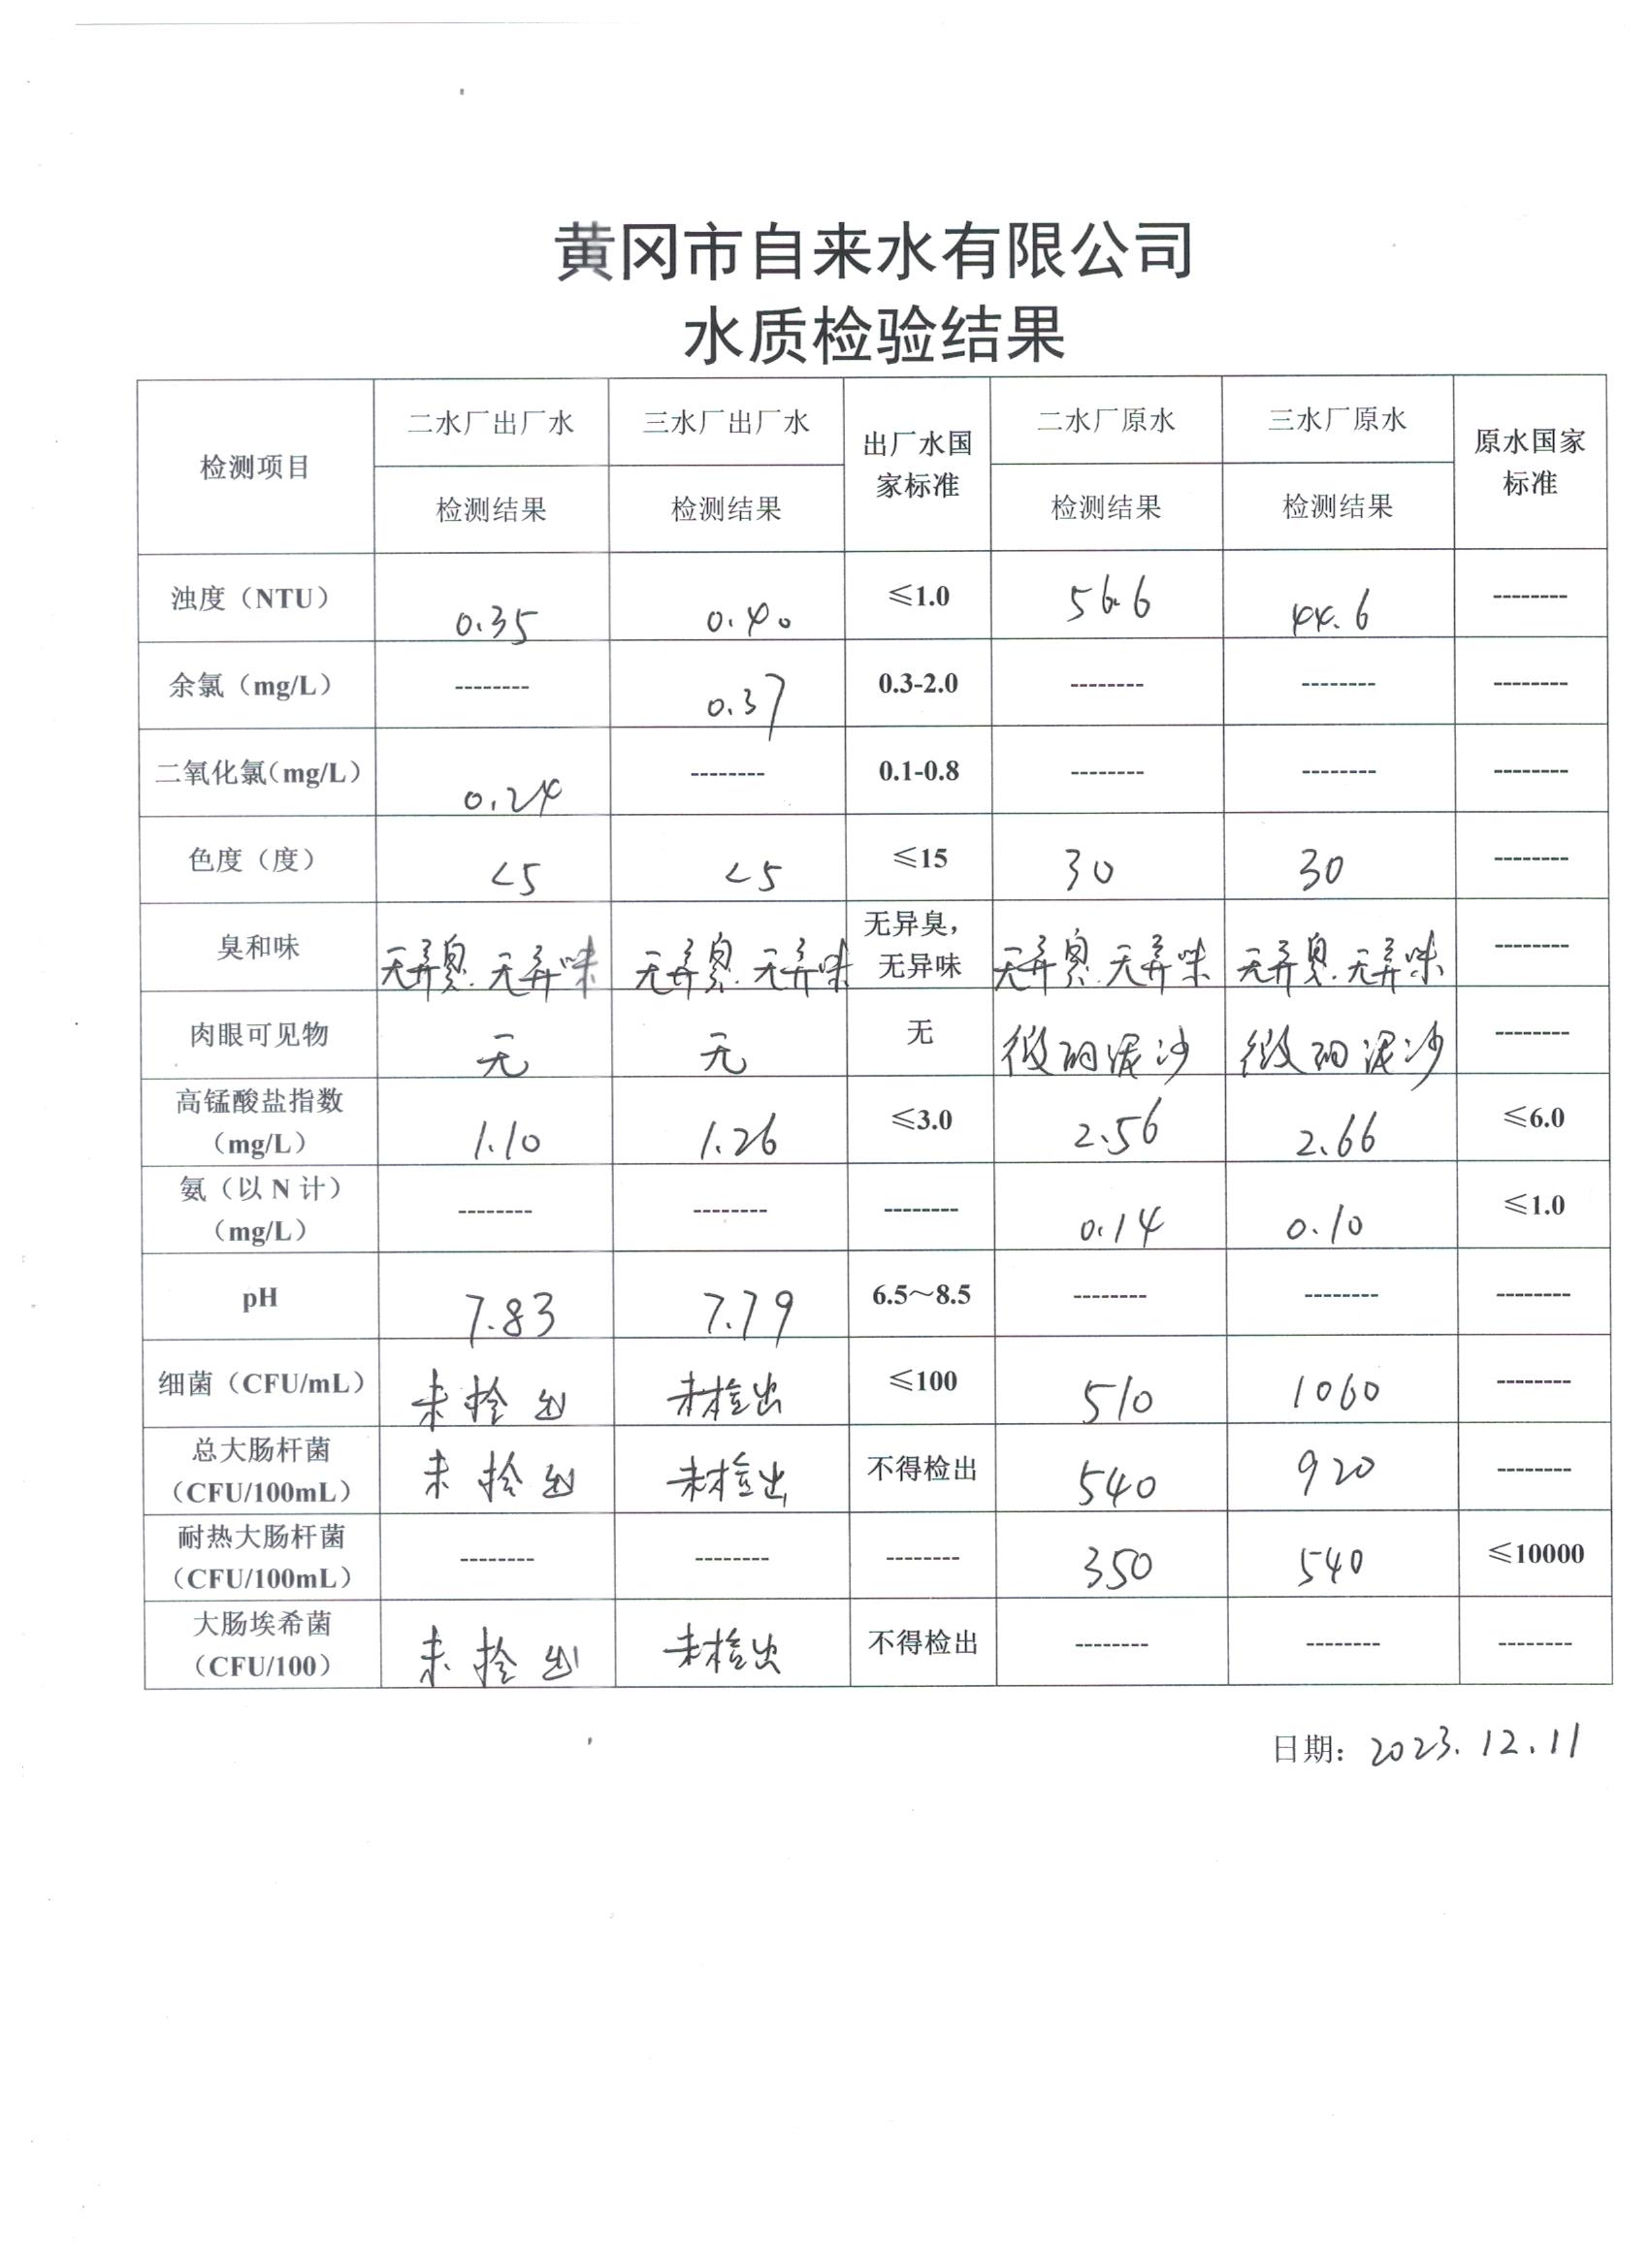 黄冈市自来水有限公司
水质检验结果
检测项目 二水厂出厂水 三水厂出厂水 出厂水国家标准 二水厂原水 三水厂原水 原水国家标准
检测结果 检测结果 检测结果 检测结果
浊度（NTU） 0.35 0.40 ≤1.0 56.6 44.6 --------
余氯（mg/L） -------- 0.37 0.3-2.0 -------- -------- --------
二氧化氯（mg/L） 0.24 -------- 0.1-0.8 -------- -------- --------
色度（度） <5 <5 ≤15 30 30 --------
臭和味 无异臭.无异味 无异臭.无异味 无异臭，无异味 无异臭.无异味 无异臭.无异味 --------
肉眼可见物 无 无 无 微细泥沙 微细泥沙 --------
高锰酸盐指数（mg/L） 1.10 1.26 ≤3.0 2.56 2.66 ≤6.0
氨（以 N 计）（mg/L） -------- -------- -------- 0.14 0.10 ≤1.0
pH 7.83 7.79 6.5～8.5 -------- -------- --------
细菌（CFU/mL） 未检出 未检出 ≤100 510 1060 --------
总大肠杆菌（CFU/100mL） 未检出 未检出 不得检出 540 920 --------
耐热大肠杆菌（CFU/100mL） -------- -------- -------- 350 540 ≤10000
大肠埃希菌（CFU/100） 未检出 未检出 不得检出 -------- -------- --------
日期：2023.12.11